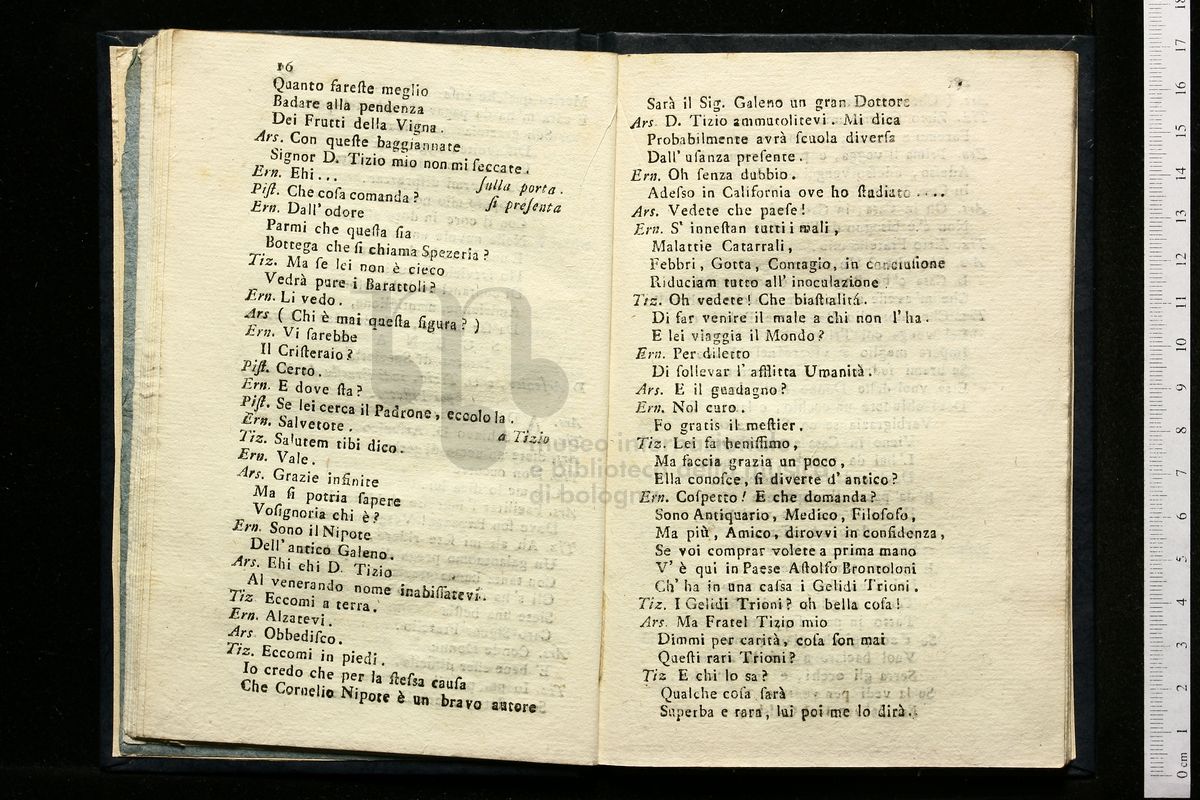 16
Quanto fareſte meglio
Badare alla pendenza
Dei Frutti della Vigna.
Ars. Con queſte baggiannate
Signor D. Tizio mio non mi ſeccate.
Ern. Ehi... ſulla porta.
Piſt. Che coſa comanda? ſi preſenta
Ern. Dall'odore
Parmi che queſta ſia
Bottega che ſi chiama Spezeria?
Tiz. Ma ſe lei non è cieco
Vedrà pure i Barattoli?
Ern. Li vedo.
Ars ( Chi è mai queſta figura? )
Ern. Vi ſarebbe
Il Criſteraio?
Piſt. Certo.
Ern. E dove ſta?
Piſt. Se lei cerca il Padrone, eccolo la.
Ern. Salvetote. a Tizio
Tiz. Salutem tibi dico.
Ern. Vale.
Ars. Grazie infinite
Ma ſi potria ſapere
Voſignoria chi è?
Ern. Sono il Nipote
Dell'antico Galeno.
Ars. Ehi ehi D. Tizio
Al venerando nome inabiſſatevi.
Tiz Eccomi a terra.
Ern. Alzatevi.
Ars. Obbediſco.
Tiz. Eccomi in piedi.
Io credo che per la ſteſsa cauſa
Che Cornelio Nipote è un bravo autore
Sarà il Sig. Galeno un gran Dottore
Ars D. Tizio ammutolitevi. Mi dica
Probabilmente avrà ſcuola diverſa
Dall'uſanza preſente.
Ern. Oh ſenza dubbio.
Adeſso in California ove ho ſtudiato ....
Ars. Vedete che paeſe!
Ern. S' inneſtan tutti i mali,
Malattie Catarrali,
Febbri, Gotta, Contagio, in concluſione
Riduciam tutto all' inoculazione
Tiz. Oh vedete! Che biaſtialitá.
Di far venire il male a chi non l'ha.
E lei viaggia il Mondo?
Ern. Per diletto
Di ſollevar l' afflitta Umanità.
Ars. E il guadagno?
Ern. Nol curo.
Fo gratis il meſtier.
Tiz. Lei fa beniſſimo,
Ma faccia grazia un poco,
Ella conoſce, ſi diverte d' antico?
Ern. Coſpetto! E che domanda?
Sono Antiquario, Medico, Filoſofo,
Ma più, Amico, dirovvi in confidenza,
Se voi comprar volete a prima mano
V' è qui in Paese Aſtolfo Brontoloni
Ch' ha in una caſsa i Gelidi Trioni.
Tiz. I Gelidi Trioni? oh bella coſa!
Ars. Ma Fratel Tizio mio
Dimmi per carità, coſa ſon mai
Queſti rari Trioni?
Tiz E chi lo sa?
Qualche coſa ſarà
Superba e rara, lui poi me lo dirà.
museo internazionale
e biblioteca della musica
di bologna